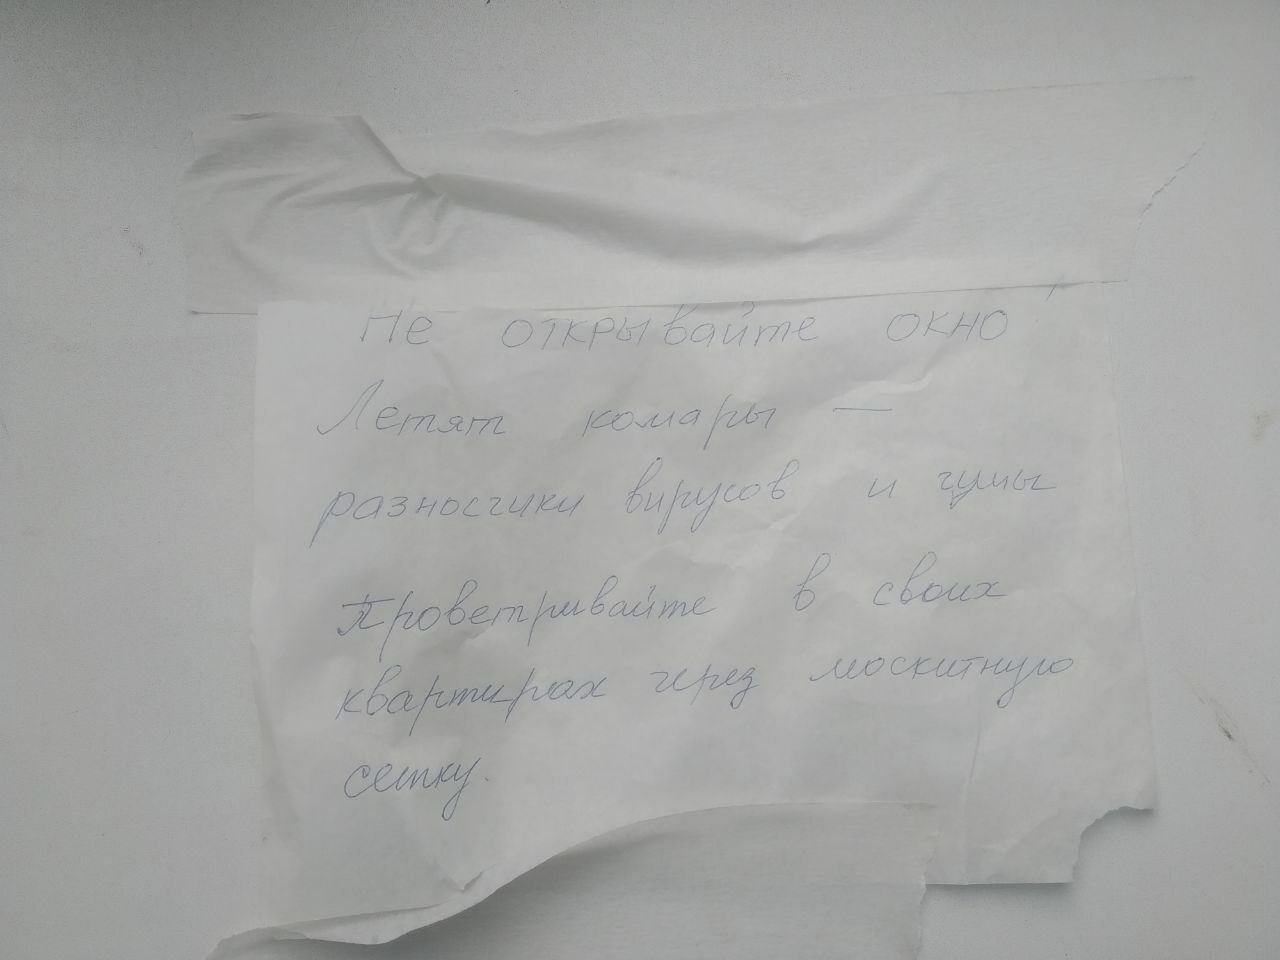 Не открывайте окно!
Летят комары —
разносчики вирусов и чумы
Проветривайте в своих
квартирах через москитную
сетку.